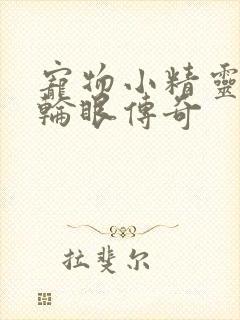 寵物小精靈
輪眼傳奇
拉斐尔